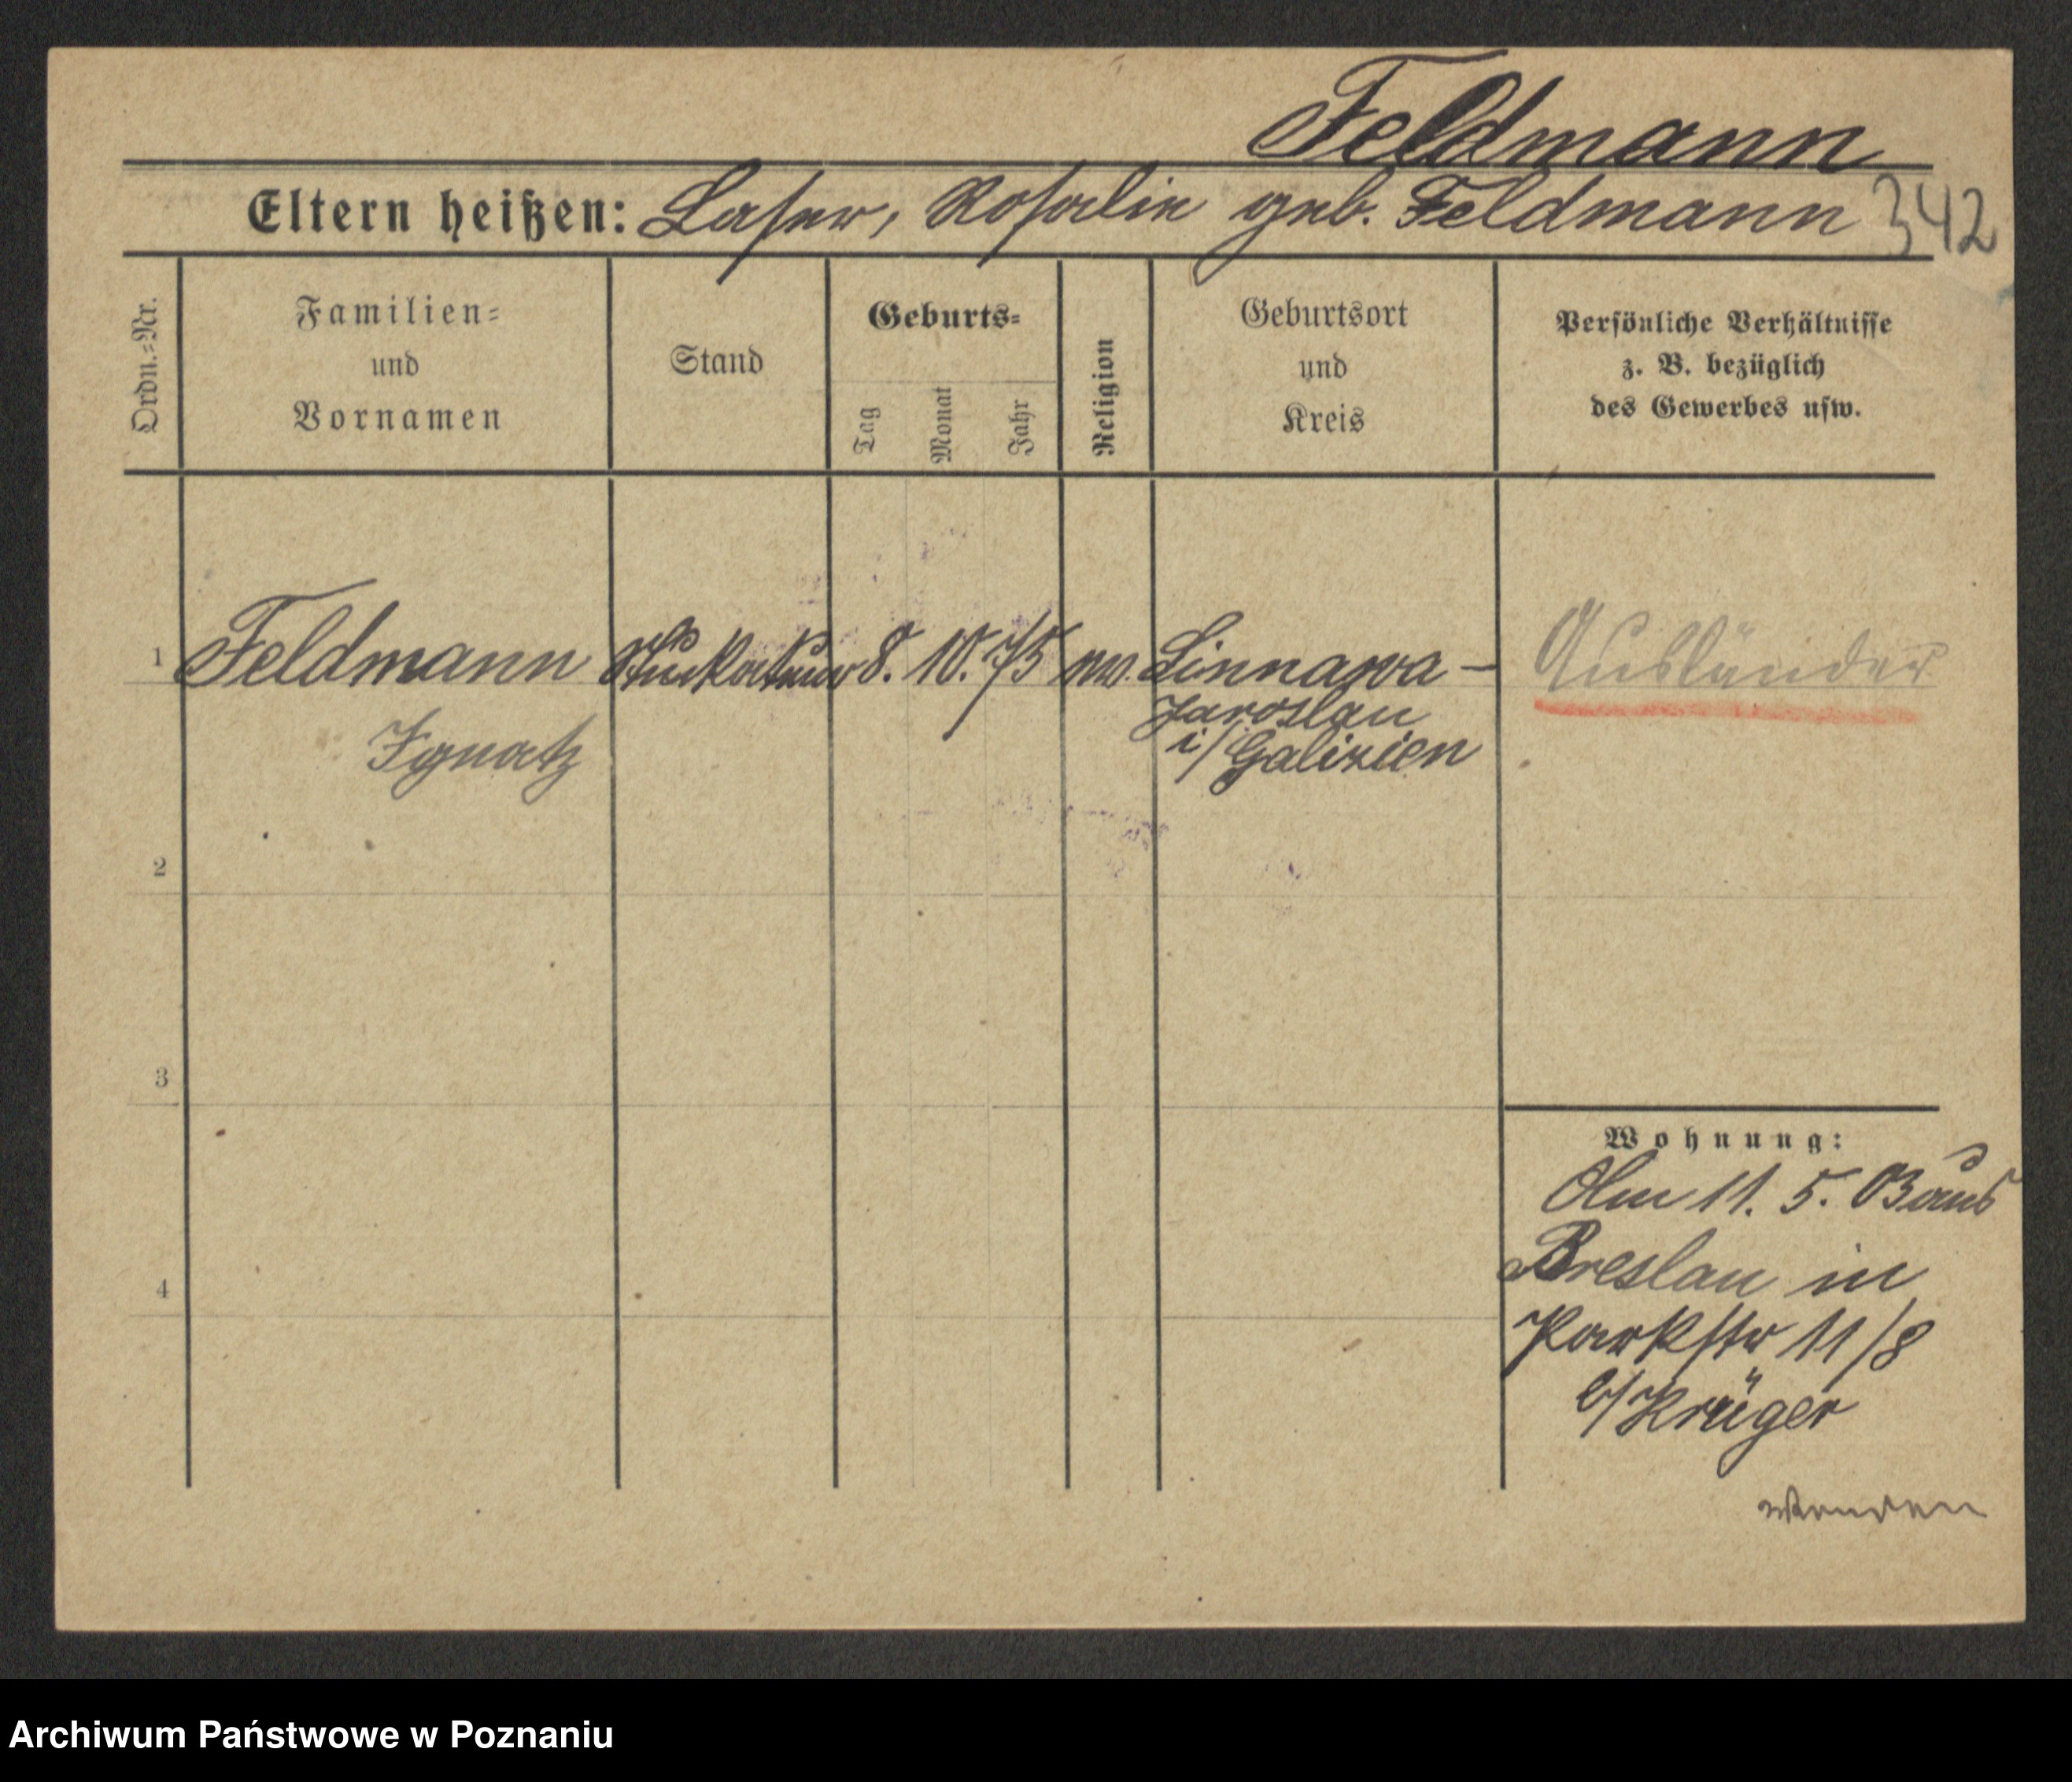 Feldmann
Eltern heißen: Laser, Rosalie geb. Feldmann 342
Ordn.=Nr.
Familien=
und
Vornamen
Stand
Geburts=
Tag
Monat
Jahr
Religion
Geburtsort
und
Kreis
Persönliche Verhältnisse
z. B. bezüglich
des Gewerbes usw.
1 Feldmann Stuckateur 8. 10. 75 Linnawa – Ausländer
Jaroslau
Ignatz i/Galizien
2
3
4
Wohnung:
Am 11. 5. 03 aus
Breslau in
Parkstr 11/8
b/Krüger
wenden
Archiwum Państwowe w Poznaniu